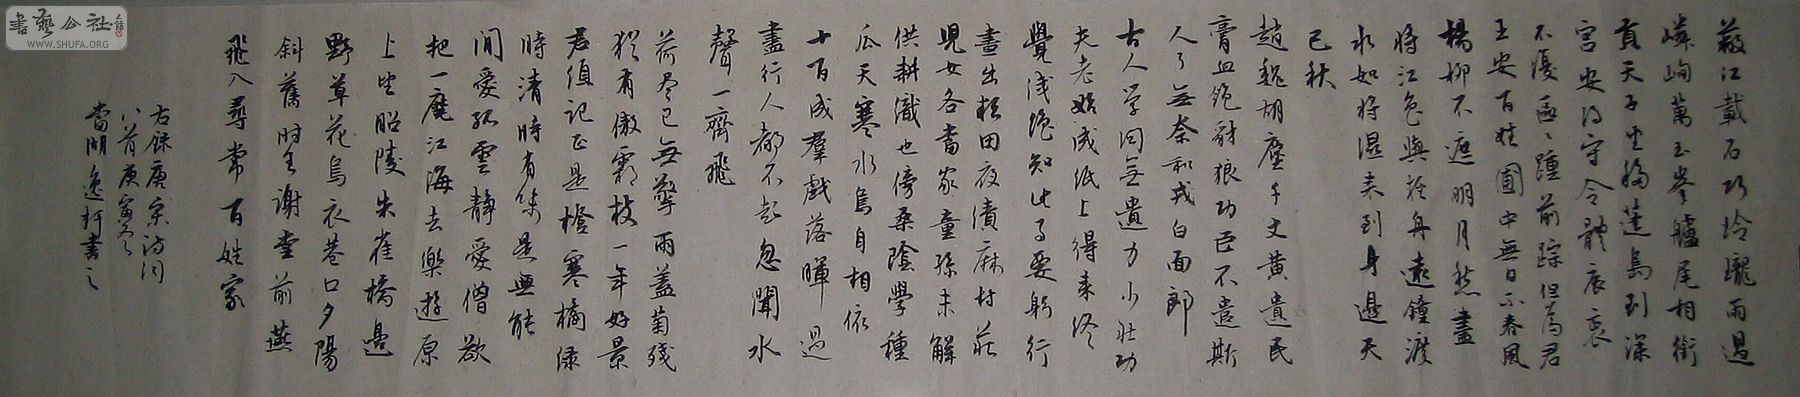 蘇江載石巧玲瓏雨過
嶙峋萬玉峯艫尾相銜
貢天子坐移蓬島到深
宮安得守令體宸衷
不復區〻踵前踪但為君
王安百姓圃中無日不春風
楊柳不遮明月愁盡
將江色與輕舟遠鐘渡
水如將濕來到身邊天
已秋
趙魏胡塵千丈黃遺民
膏血飽豺狼功臣不遣斯
人了無奈和戎白面郎
古人學問無遺力少壯功
夫老始成紙上得來終
覺淺絕知此事要躬行
晝出耘田夜績麻村莊
兒女各當家童孫未解
供耕織也傍桑陰學種
瓜天寒水鳥自相依
十百成羣戲落暉過
盡行人都不起忽聞水
聲一齊飛
荷盡已無擎雨蓋菊殘
猶有傲霜枝一年好景
君須記正是橙寒橘綠
時清時有味是無能
閒愛孤雲靜愛僧欲
把一麾江海去樂遊原
上望昭陵朱雀橋邊
野草花烏衣巷口夕陽
斜舊時王謝堂前燕
飛入尋常百姓家
右錄唐宋詩
八首庚寅冬
當湖逸軒書之
書藝公社
WWW.SHUFA.ORG